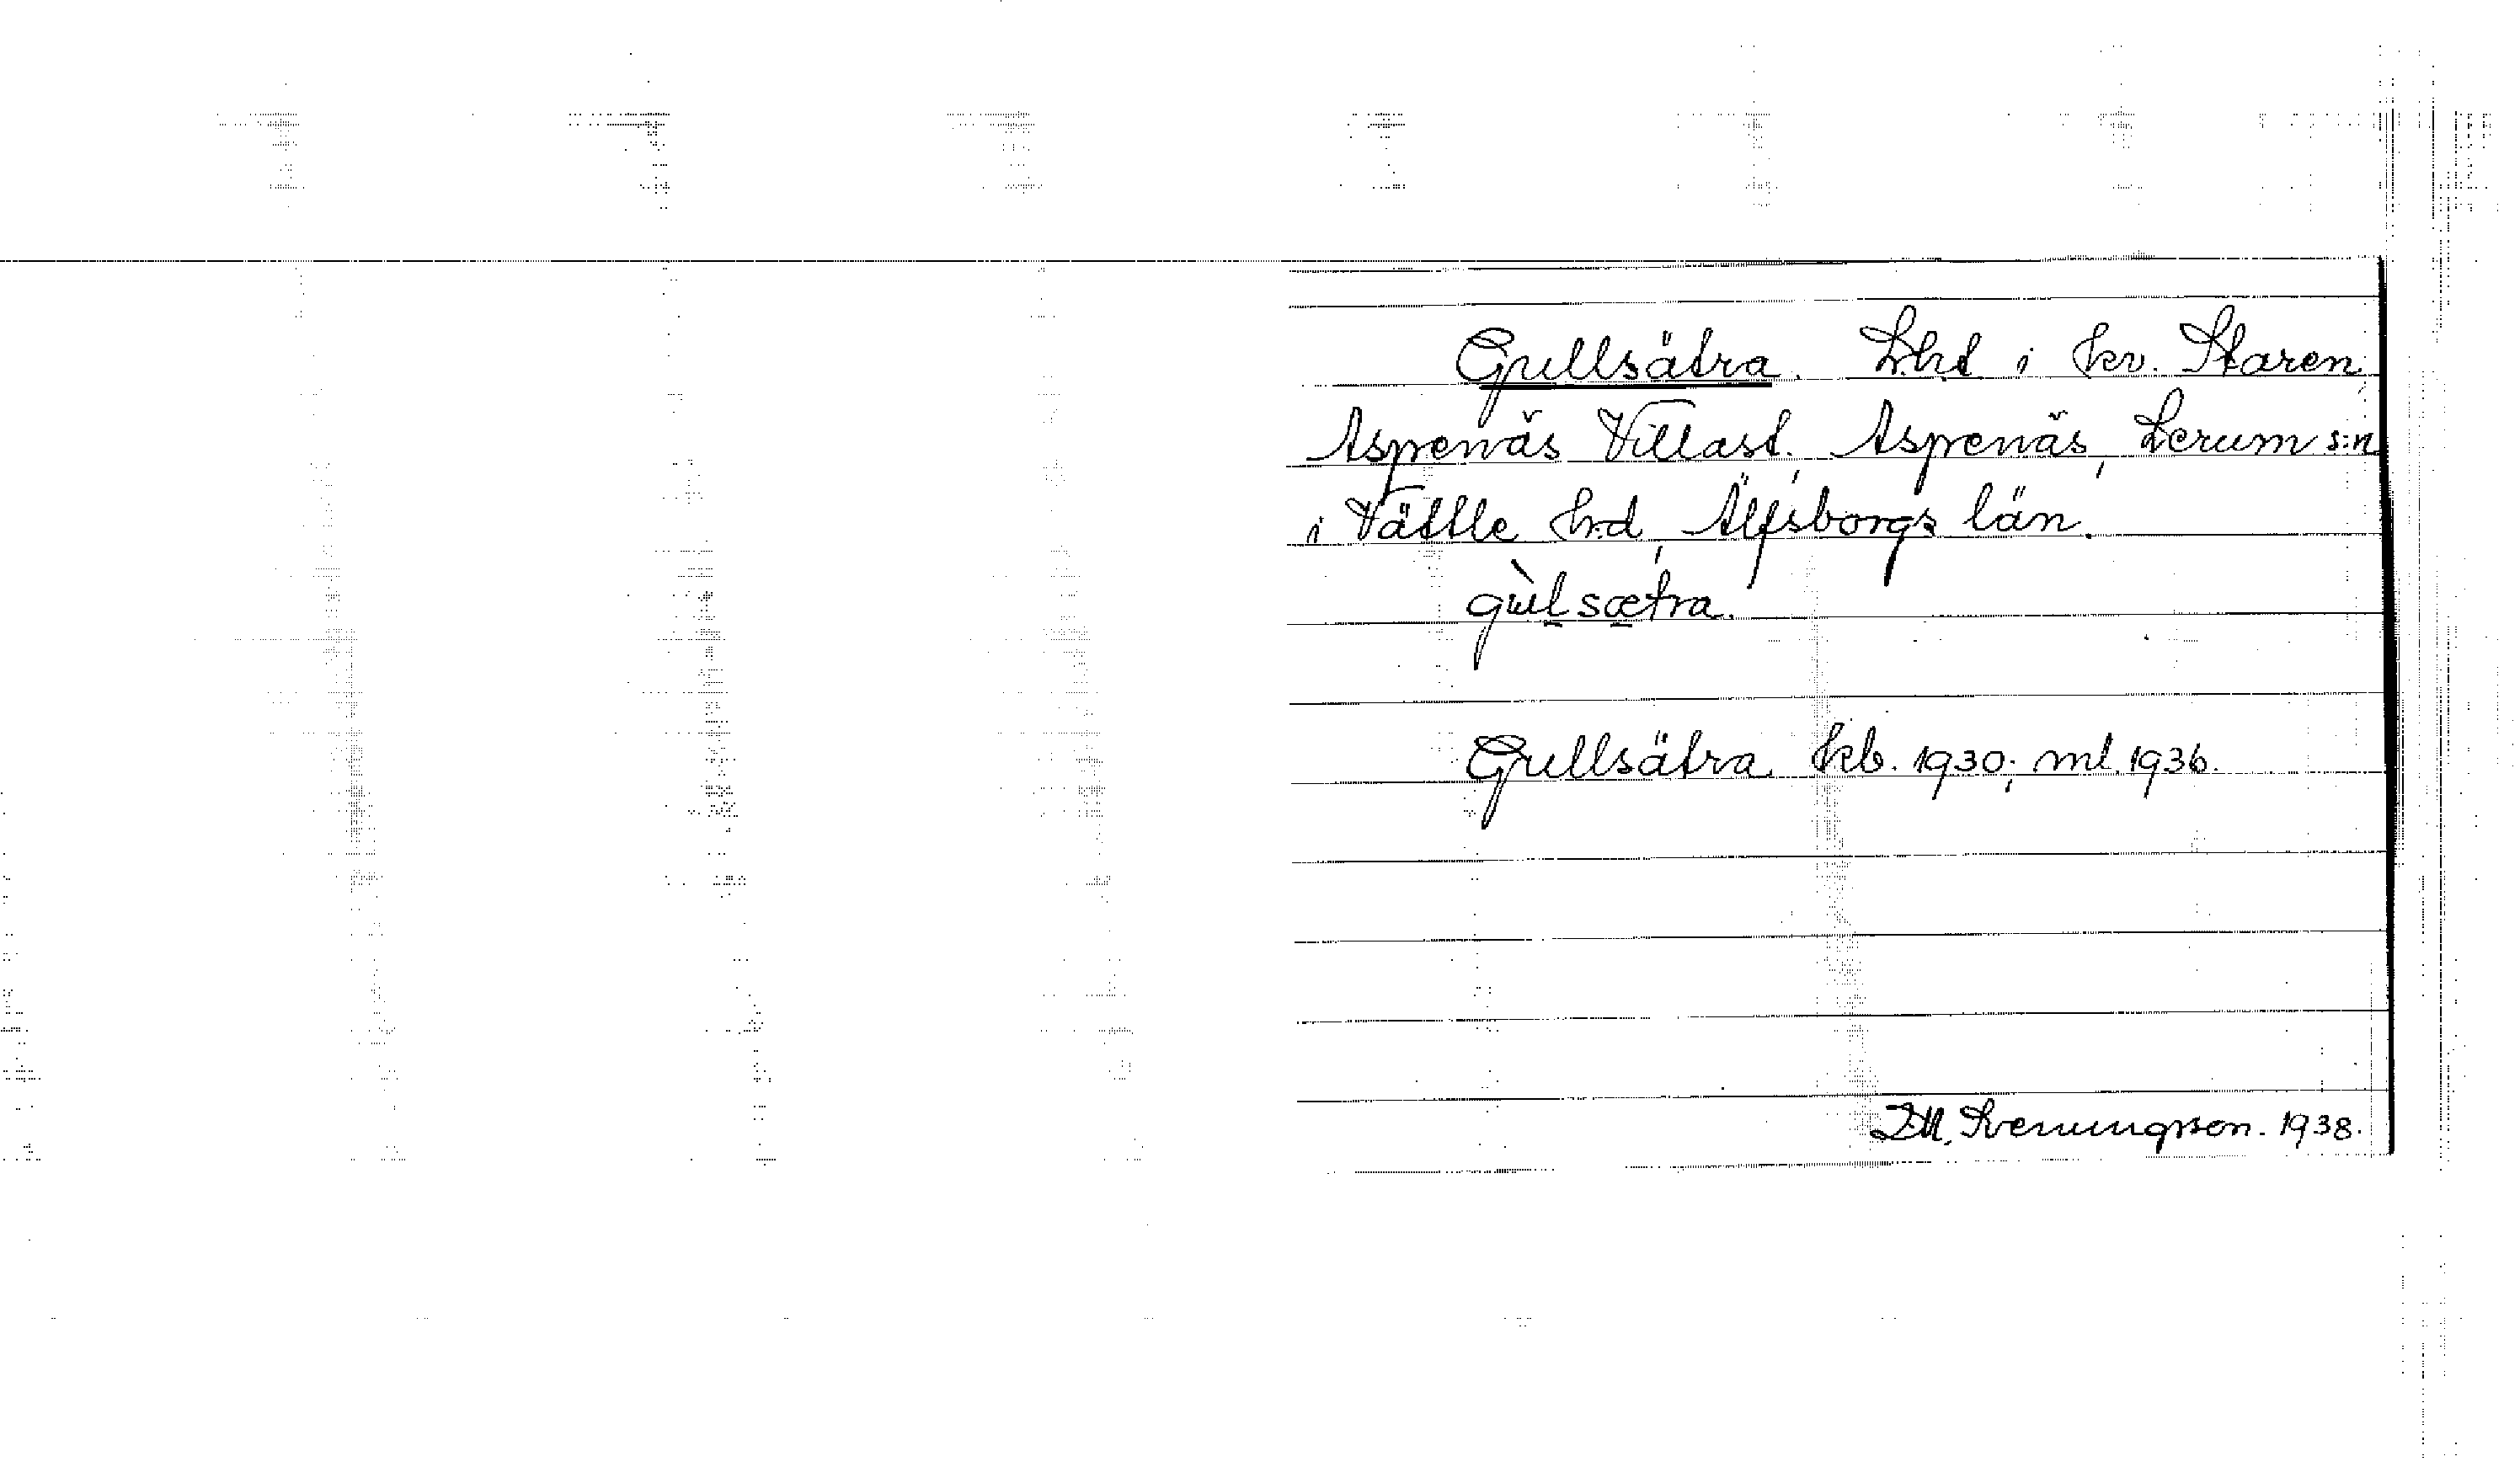 Gullsätra. Lht i kv. Staren,
Aspenäs Villast., Aspenäs, Lerum s:n
i Vättle hd, Älfsborgs län.
gùlsætra.
Gullsätra kb. 1930; ml. 1936.
Svenungsson. 1938.